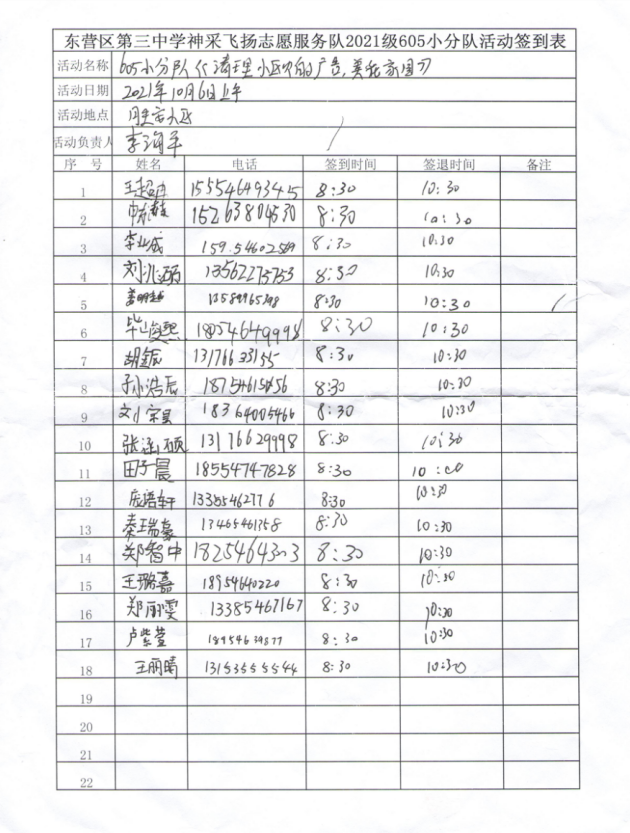 东营区第三中学神采飞扬志愿服务队2021级605小分队活动签到表
活动名称 605小分队 清理小区 的广告,美化家园
活动日期 2021年10月6日上午
活动地点
活动负责人 李海军
序 号 姓名 电话 签到时间 签退时间 备注
1 15554649345 8:30 10:30
2 15263804530 8:30 10:30
3 8:30 10:30
4 13562275753 8:30 10:30
5 8:30 10:30
6 18054649998 8:30 10:30
7 13176633155 8:30 10:30
8 孙浩辰 18754615656 8:30 10:30
9 18364005466 8:30 10:30
10 张涵硕 13176629998 8:30 10:30
11 田子晨 18554747828 8:30 10:00
12 庞语轩 13385462776 8:30 10:30
13 秦瑞豪 8:30 10:30
14 郑智中 1825464303 8:30 10:30
15 王璐嘉 18954640220 8:30 10:30
16 郑丽雯 13385467167 8:30 10:30
17 卢紫萱 8:30 10:30
18 王丽晴 13153555544 8:30 10:30
19
20
21
22